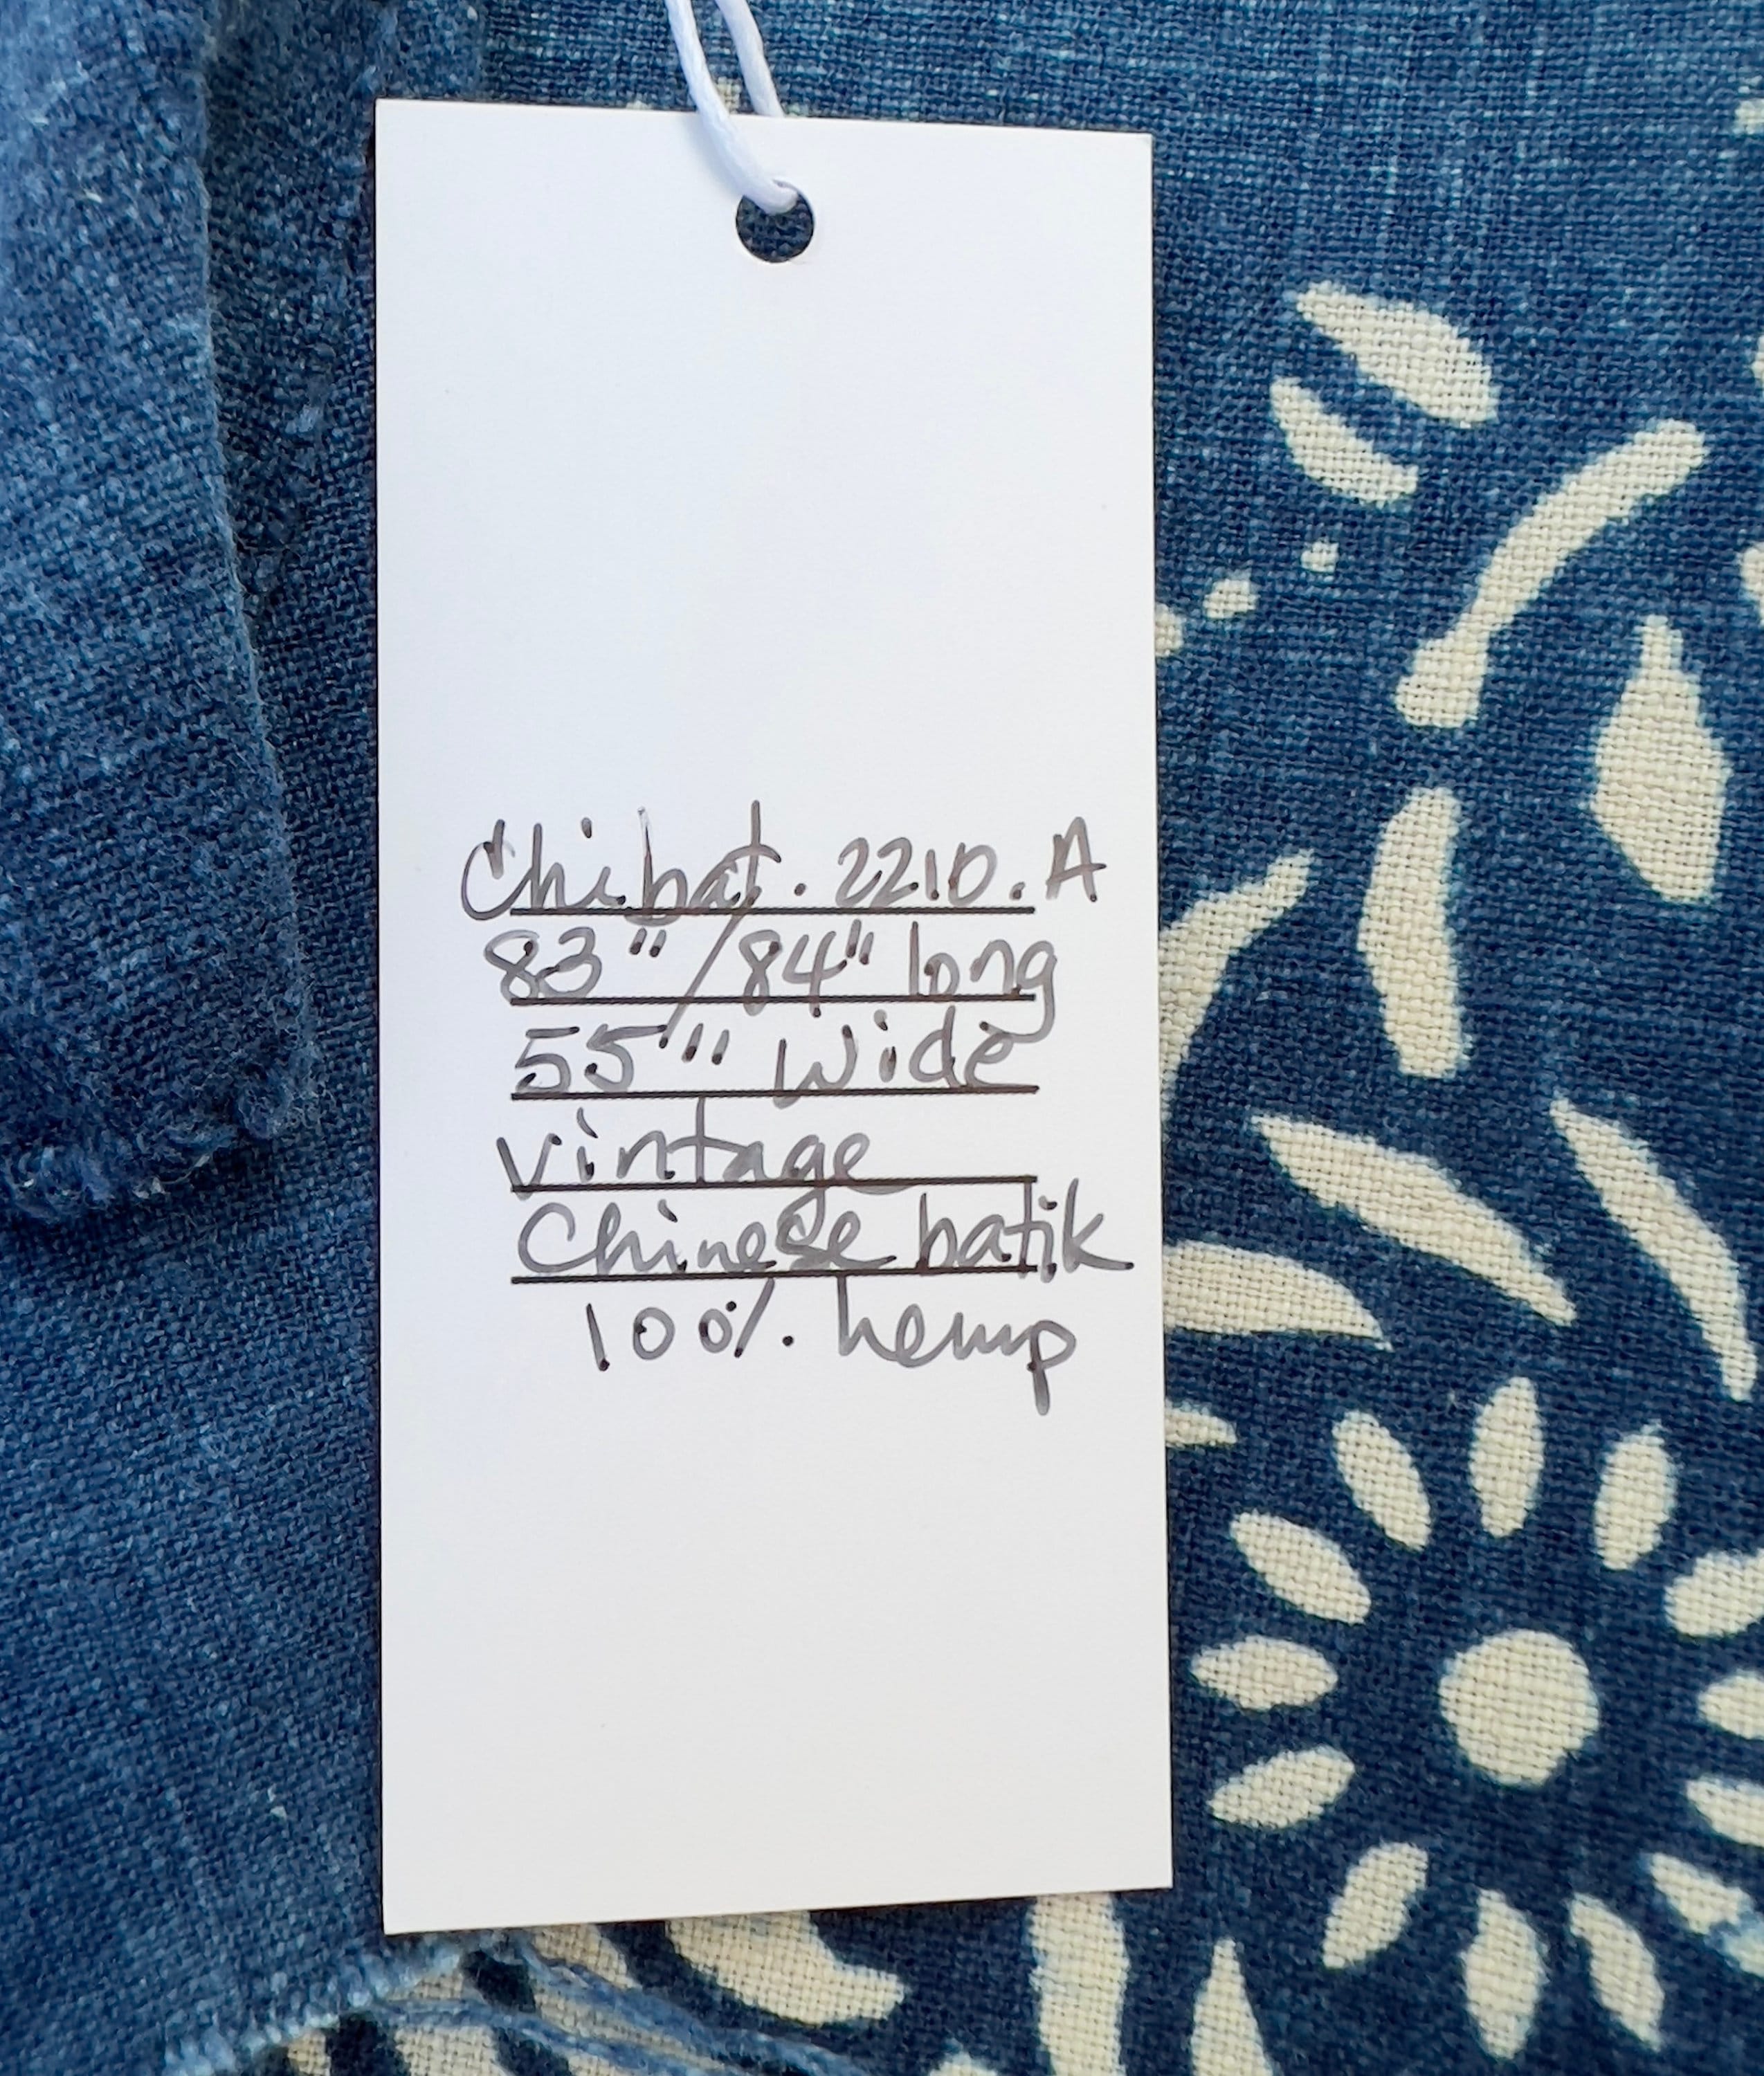 Chi.bat.2210.A
83"/84" long
55" wide
vintage
Chinese batik
100% hemp